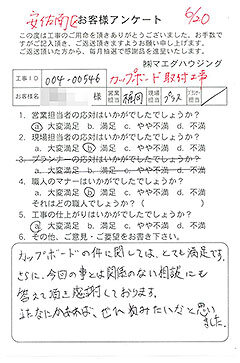 安佐南区 お客様アンケート 6/20
この度は工事のご用命を頂きありがとうございました。お手数で
すがご記入頂き、ご返送頂きますようお願い申し上げます。
ご返送頂いた方から、毎月抽選で感謝品を進呈いたします。
㈱マエダハウジング
工事ID 004-00546 カップボード取付工事
お客様名 様 営業担当 福岡 現場担当 プラス プランナー担当
1. 営業担当者の応対はいかがでしたでしょうか?
a 大変満足 b. 満足 c. やや不満 d. 不満
2. 現場担当者の応対はいかがでしたでしょうか?
a. 大変満足 b 満足 c. やや不満 d. 不満
3. プランナーの応対はいかがでしたでしょうか?
a. 大変満足 b. 満足 c. やや不満 d. 不満
4. 職人のマナーはいかがでしたでしょうか?
a. 大変満足 b 満足 c. やや不満 d. 不満
それはどの職人でしょうか? ( )
5. 工事の仕上がりはいかがでしたでしょうか?
a 大変満足 b. 満足 c. やや不満 d. 不満
6. その他、ご意見・ご要望をお書き下さい。
カップボードの件に関しては、とても満足です。
さらに、今回の事とは関係のない相談にも
答えて頂き感謝しております。
又なにかあれば、ぜひ頼みたいなと思い
ました。